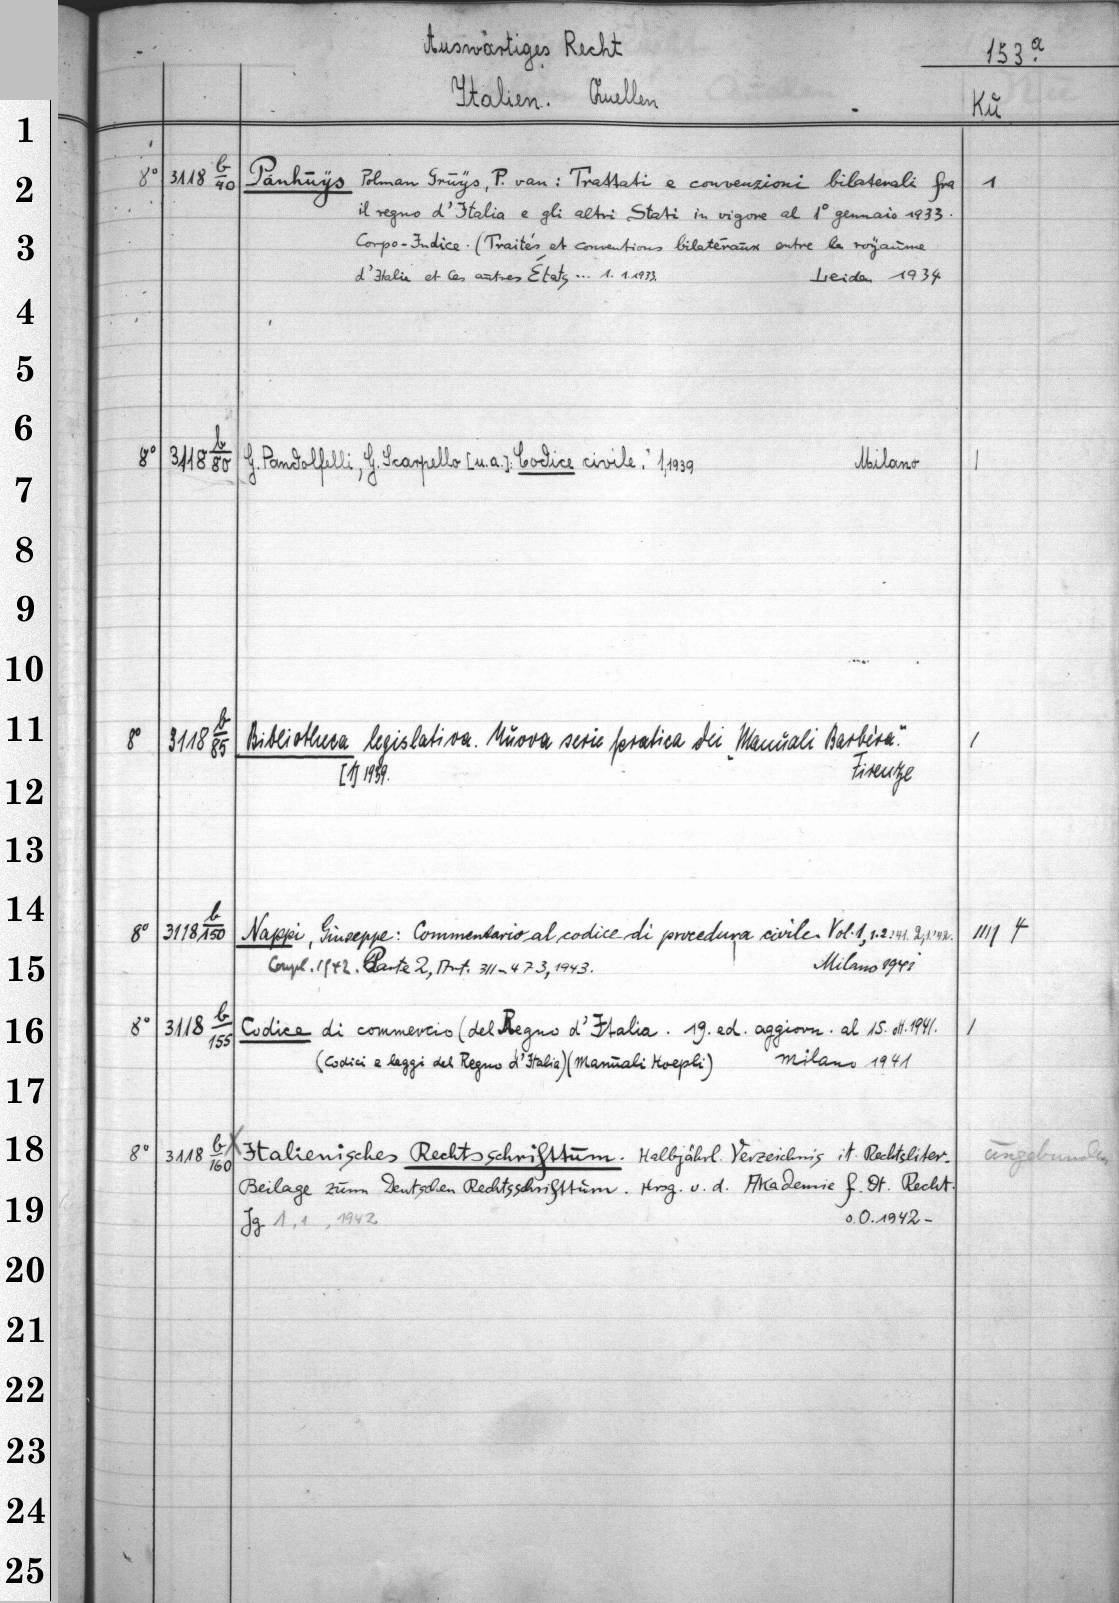 Auswärtiges Recht
153.a
Italien. Quellen
Kü
1
2
3
4
5
6
7
8
9
10
11
12
13
14
15
16
17
18
19
20
21
22
23
24
25
8° 3118 b/40 Panhuÿs Polman Gruÿs, P. van: Trattati e convenzioni bilaterali fra 1
il regno d'Italia e gli altri Stati in vigore al 1° gennaio 1933.
Corpo-Indice. (Traités et conventions bilatéraux entre le royaume
d'Italie et les autres États ... 1.1.1933. Leida 1934
8° 3118 b/80 G. Pandolfelli, G. Scarpello [u.a.]: Codice civile. 1,1939 Milano 1
8° 3118 b/85 Bibliotheca legislativa. Nuova serie pratica dei „Manuali Barbèra". 1
[1] 1939. Firenze
8° 3118 b/150 Nappi, Giuseppe: Commentario al codice di procedura civile. Vol. 1, 1.2.:41. 2,1.'42. 4
Compl. 1942. Parte 2, Art. 311-473, 1943. Milano 1941
8° 3118 b/155 Codice di commercio (del Regno d'Italia. 19. ed. aggiorn. al 15. ott. 1941. 1
(Codici e leggi del Regno d'Italia) (Manuali Hoepli) Milano 1941
8° 3118 b/160 X Italienisches Rechtsschrifttum. Halbjährl. Verzeichnis it. Rechtsliter- ungebunden
Beilage zum Deutschen Rechtsschrifttum. Hrsg. v. d. Akademie f. Dt. Recht.
Jg 1,1, 1942 o.O. 1942-